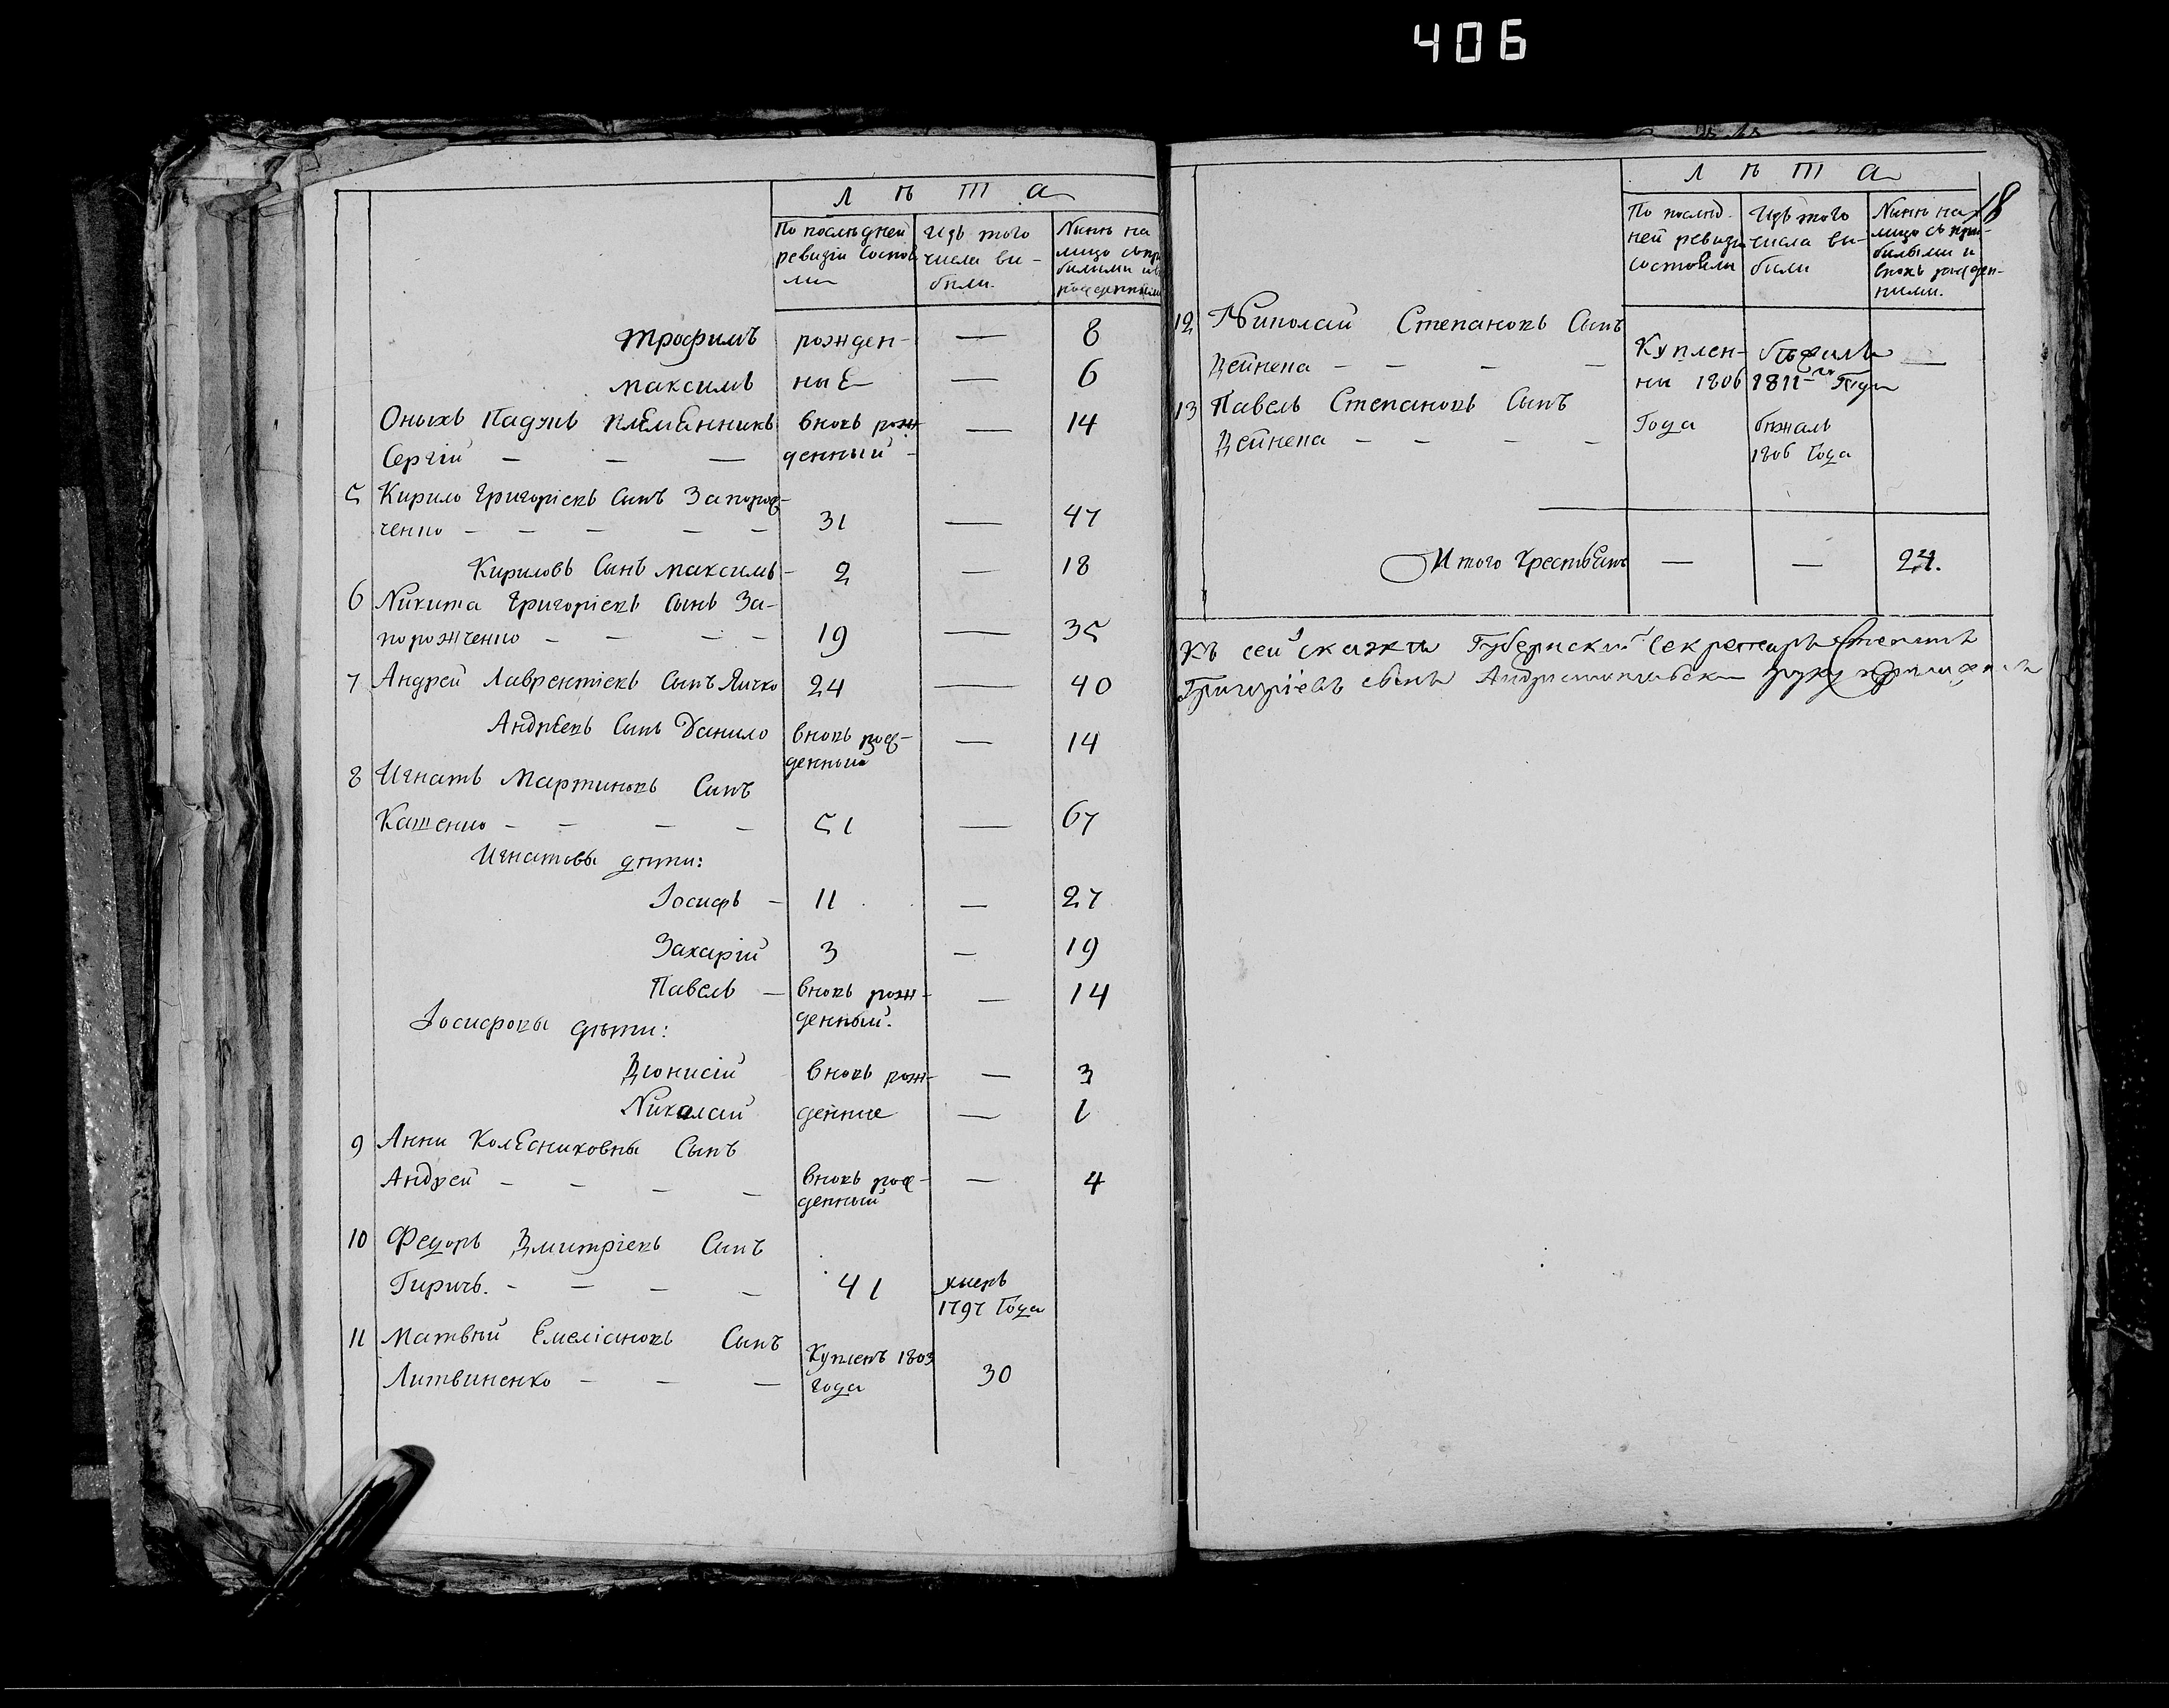 406
Л Ѣ Т А
По последней ревизіи состояли
Изъ того числа выбыли.
Нынѣ на лицо съ прибылыми и рожденными
Трофимъ рожден- — 8
Максимъ ные — 6
Оныхъ Падунъ племянникъ вновь рож- — 14
Сергій — — — денный
5 Кирило Григоріевъ сынъ Запорож-
ченко — — — — — 31 — 47
Кириловъ сынъ Максимъ - 2 — 18
6 Никита Григоріевъ сынъ За-
порожченко — — — — 19 — 35
7 Андрей Лаврентіевъ сынъ Яичко 24 — 40
Андреевъ сынъ Данило вновь рож- — 14
денный
8 Игнатъ Мартиновъ сынъ
Кашенко — — — — 51 — 67
Игнатовы дѣти:
Іосифъ — 11 — 27
Захарій 3 — 19
Павелъ — вновь рож- — 14
денный.
Іосифовы дѣти:
Діонисій вновь рож- — 3
Николай денные — 1
9 Анны Колесниковны сынъ
Андрей — — — — вновь рож- — 4
денный
10 Федоръ Дмитріевъ сынъ
Гиричъ. — — — — 41 умеръ
1797 Года
11 Матвѣй Емеліановъ сынъ
Литвиненко — — — Купленъ 1803 года 30
18
Л Ѣ Т А
По послед-
ней ревизіи
состояли
Изъ того
числа вы-
были
Нынѣ на
лицо съ при-
былыми и
вновь рожден-
ными.
12 Николай Степановъ сынъ
Дейнека — — — — Куплен- —
ны 1806 1811 Года
13 Павелъ Степановъ сынъ
Дейнека — — — — Года бѣжалъ
1806 Года
Итого крестьянъ — — 24.
Къ сей сказкѣ Губернскій Секретарь Степанъ
Григоріевъ сынъ руку приложилъ